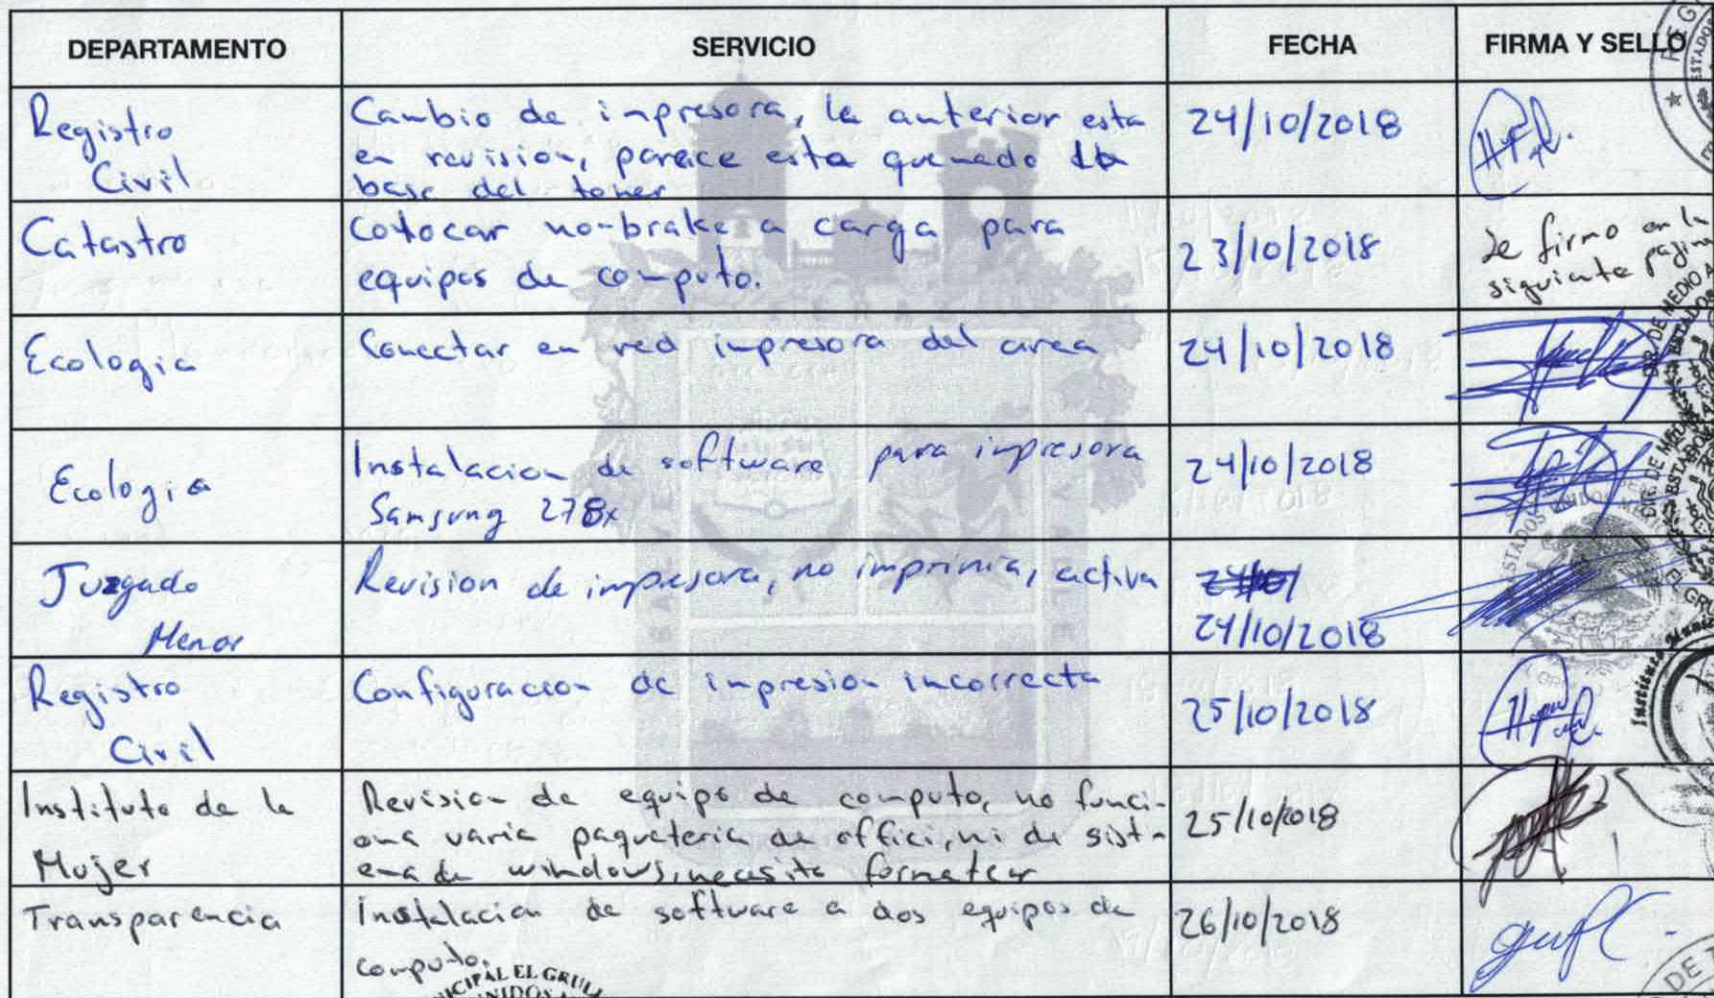 DEPARTAMENTO SERVICIO FECHA FIRMA Y SELLO
Registro Civil
Cambio de impresora, la anterior esta
en revision, parece esta quemado la
base del toner
24/10/2018
Catastro
Colocar no-brake a carga para
equipos de computo.
23/10/2018
Se firmo en la
siguiente pagina
Ecologia
Conectar en red impresora del area
24/10/2018
Ecologia
Instalacion de software para impresora
Samsung 278x
24/10/2018
Juzgado
Menor
Revision de impresora, no imprimia, activa
24/10/
24/10/2018
Registro
Civil
Configuracion de impresion incorrecta
25/10/2018
Instituto de la
Mujer
Revision de equipo de computo, no funci-
ona varia paqueteria de offici, ni de sist-
ema de windows, necesita formatear
25/10/2018
Transparencia
Instalacion de software a dos equipos de
computo.
26/10/2018
DIR. DE MEDIO A
ESTADOS UNIDOS